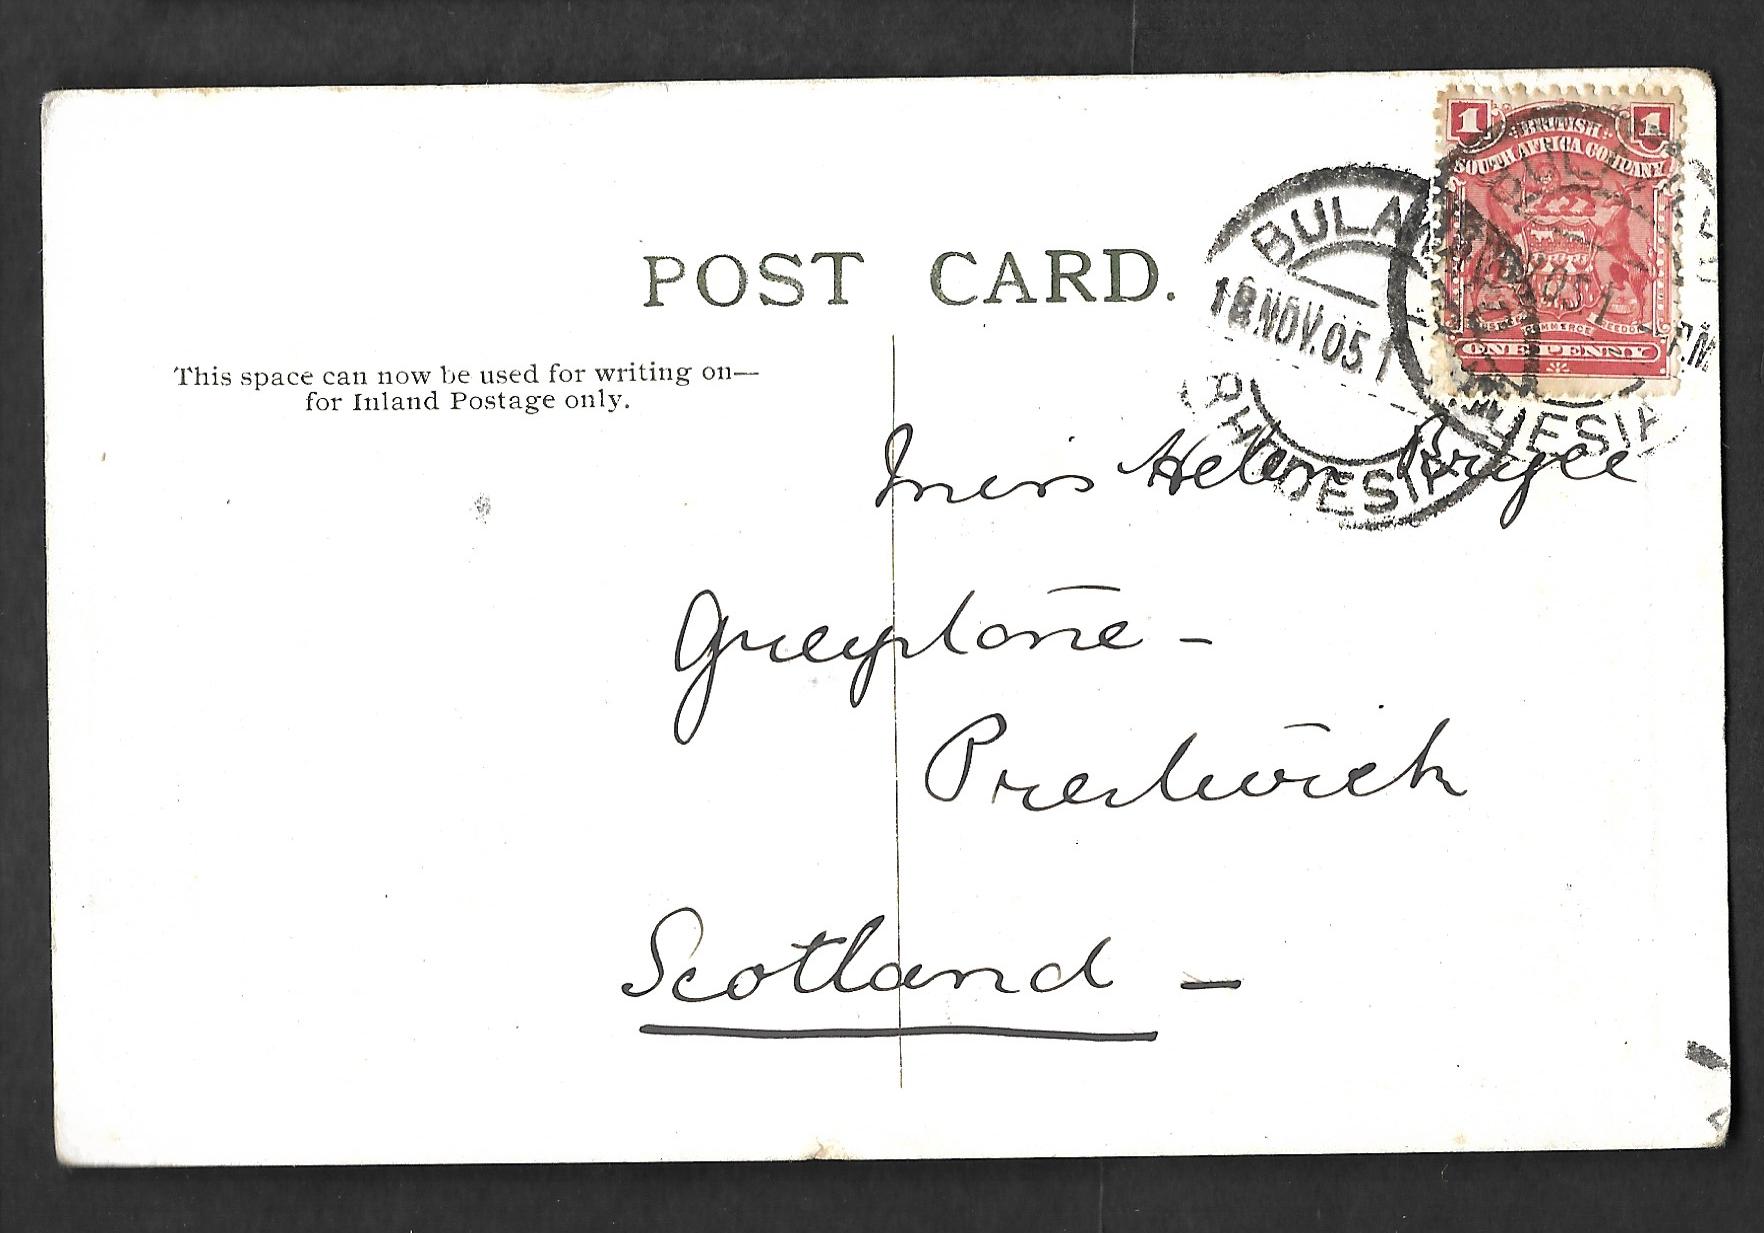 POST CARD.
This space can now be used for writing on—
for Inland Postage only.
1 1
BRITISH
SOUTH AFRICA COMPANY
COMMERCE FREEDOM
ONE PENNY
BULAWAYO
18 NOV. 05 1
RHODESIA
Miss Helen
Greystone –
Prestwick
Scotland –